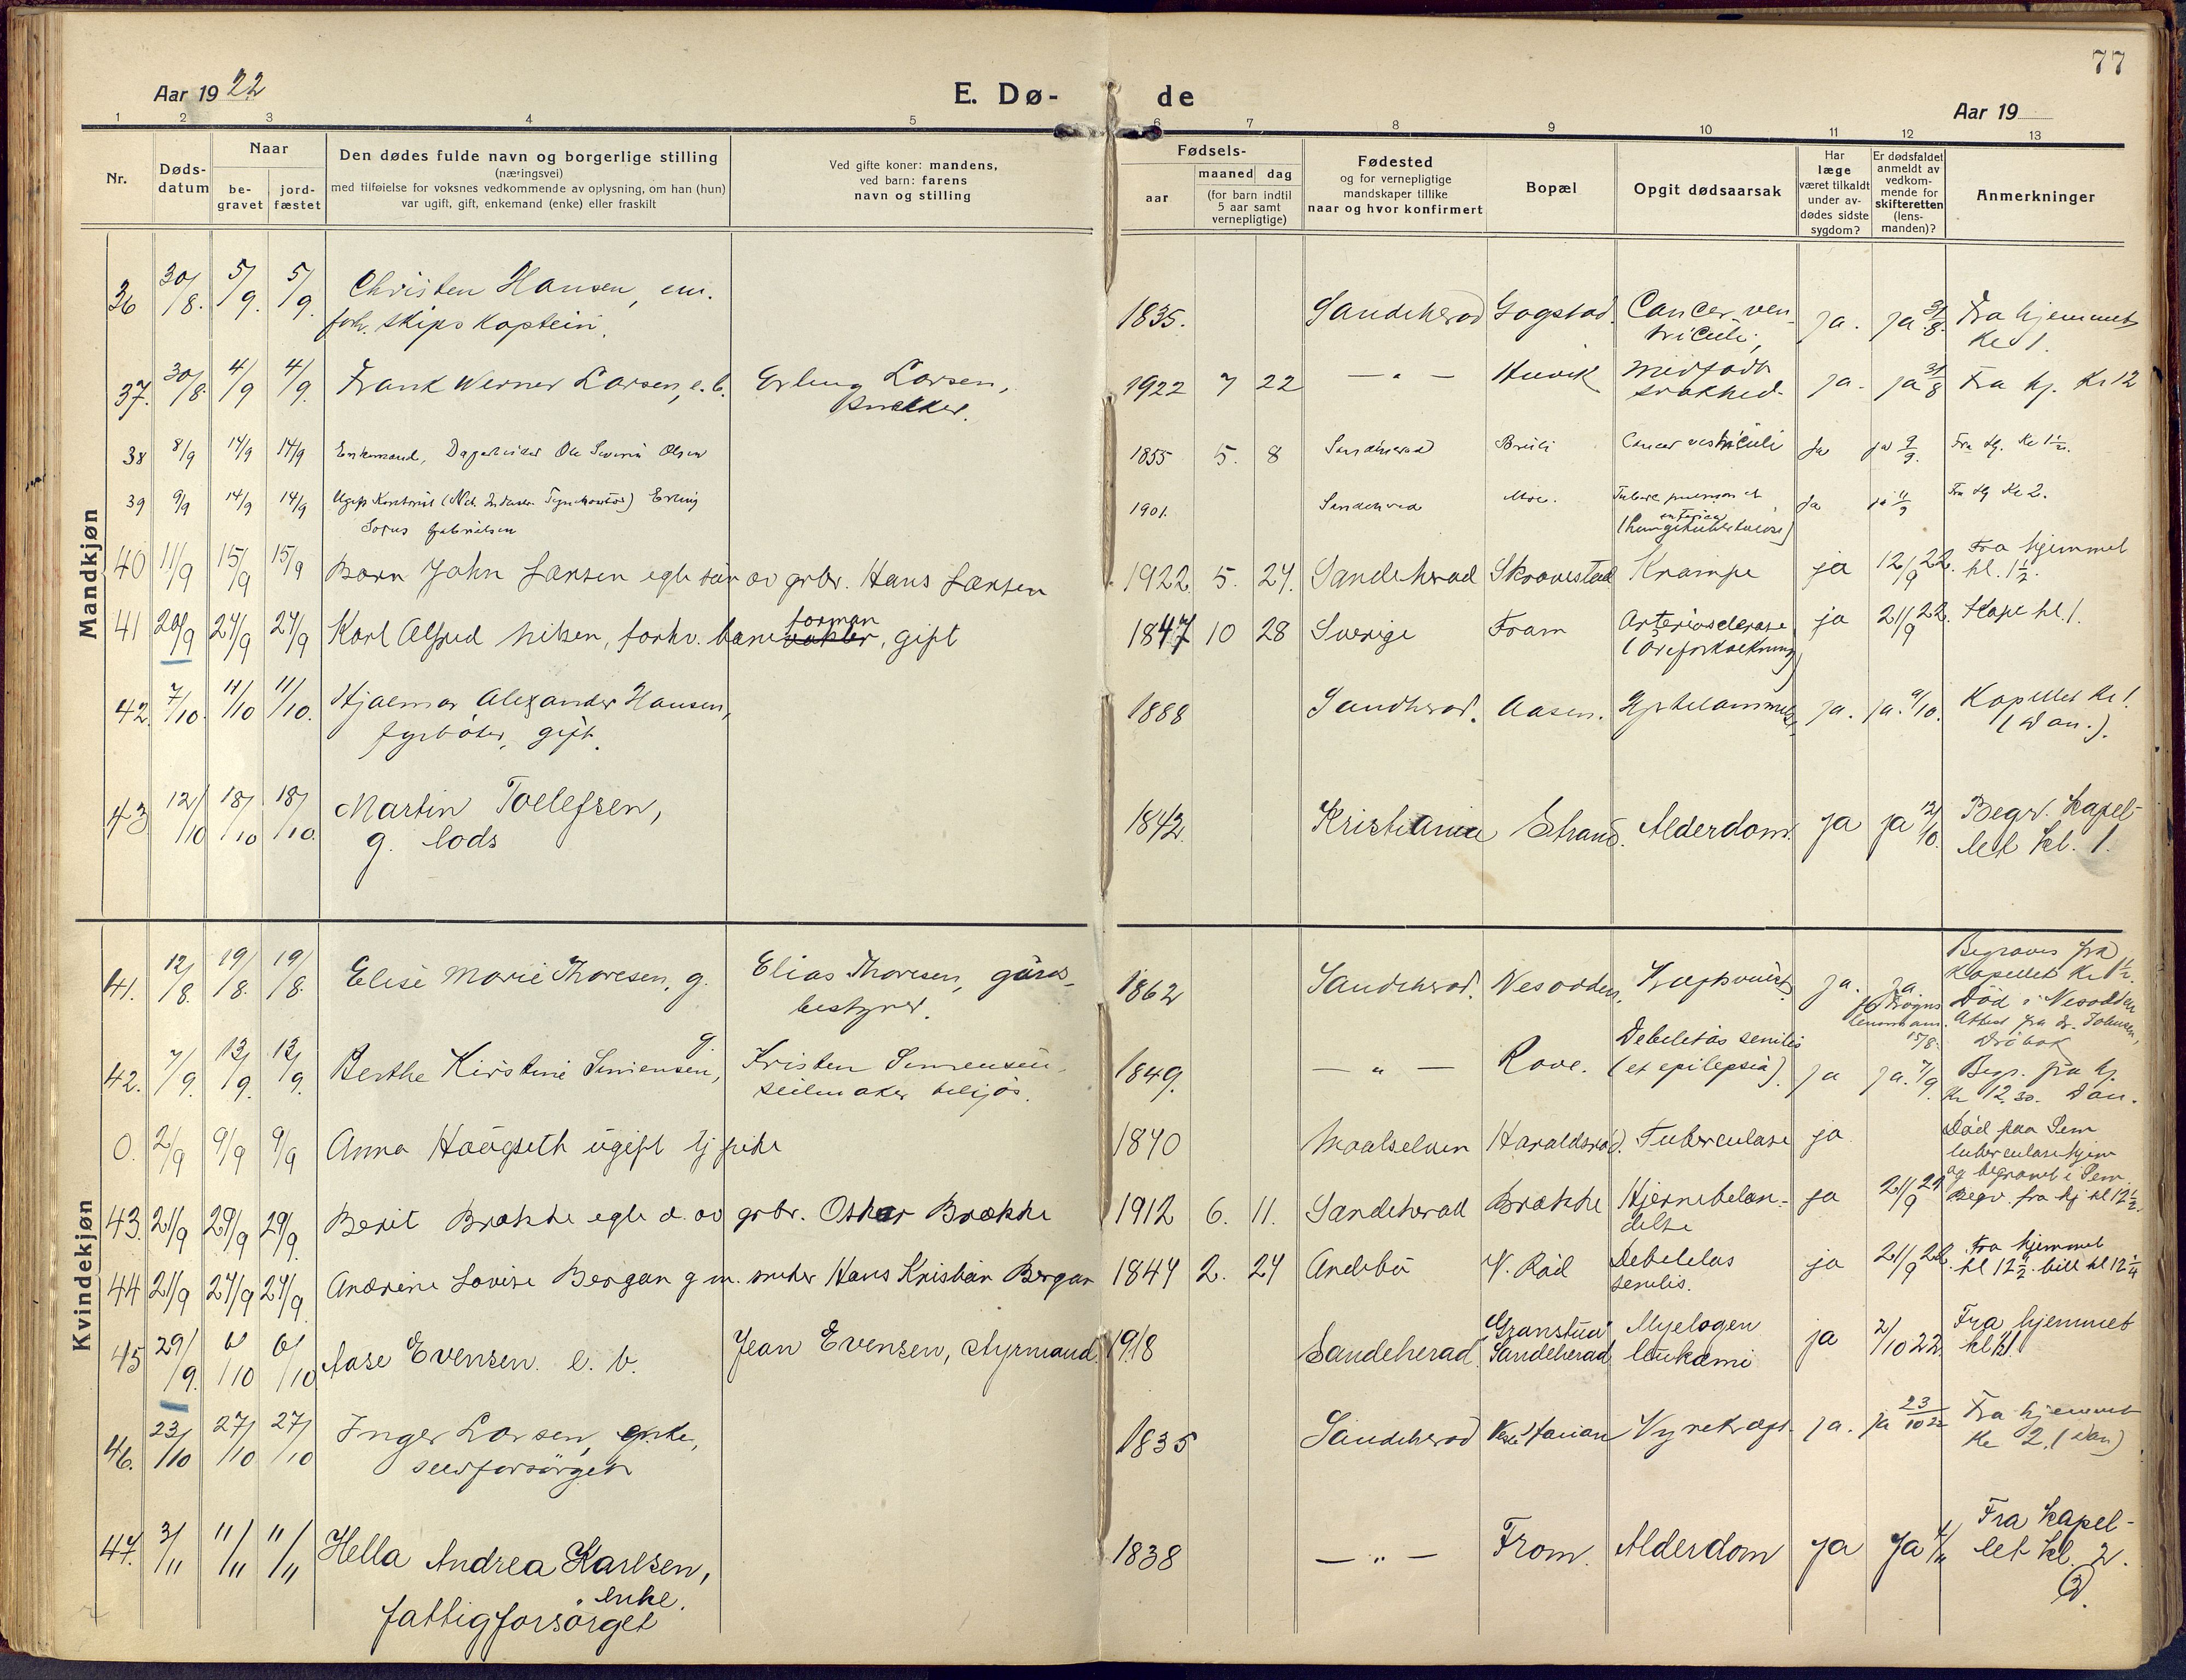 77
Aar 1922
E. Dø-
de
Aar 19
1 2 3 4 5 6 7 8 9 10 11 12 13
Nr.
Døds-
datum
Naar
be-
gravet
jord-
fæstet
Den dødes fulde navn og borgerlige stilling
(næringsvei)
med tilføielse for voksnes vedkommende av oplysning, om han (hun)
var ugift, gift, enkemand (enke) eller fraskilt
Ved gifte koner: mandens,
ved barn: farens
navn og stilling
Fødsels-
aar
maaned dag
(for barn indtil
5 aar samt
vernepligtige)
Fødested
og for vernepligtige
mandskaper tillike
naar og hvor konfirmert
Bopæl
Opgit dødsaarsak
Har
læge
været tilkaldt
under av-
dødes sidste
sygdom?
Er dødsfaldet
anmeldt av
vedkom-
mende for
skifteretten
(lens-
manden)?
Anmerkninger
Mandkjøn
36 30/8. 5/9. 5/9. Christen Hansen, em. 1835. Sandeherad Gogstad. Cancer ven- ja. ja 31/8. Fra hjemmet
forh. skipskaptein. triculi, kl 1.
37. 30/8. 4/9 4/9. Frank Werner Larsen, e. b. Erling Larsen, 1922 7 22 — " — Huvik medfødt ja. ja 31/8 Fra hj. kl 12
snekker. svakhed.
38 8/9 14/9 14/9 Enkemand, Dagarbeider Ole Severin Olsen 1855 5. 8 Sandeherad Cancer ventriculi Ja ja 9/9. Fra Hj. kl 1½.
39 9/9 14/9 14/9 Erling 1901. Sandeherad Moe. Ja ja 11/9 Fra Hj kl 2.
Gabrielsen (Lungetuberkulose)
40 11/9 15/9 15/9 Barn John Larsen egte søn av grbr. Hans Larsen 1922 5. 24. Sandeherad Skravestad Krampe ja 12/9 22. Fra hjemmet
kl. 1½.
41 20/9 24/9 24/9 Karl Alfred Nilsen, forhv. banevokter, gift 1847 10 28 Sverige Fram Arteriosclerose ja 21/9 22. Kape kl. 1.
forman
(Åreforkalkning)
42. 7/10. 11/10 11/10. Hjalmar Alexander Hansen, 1888 Sandeherad. Aasen. ja. ja. 9/10. Kapellet kl 1.
fyrbøter, gift. (Dan.).
43 12/10 18/10 18/10. Martin Toelefsen, 1842. Kristiania Strand. Alderdom. ja ja 12/10. Begr. kapel-
g. lods let kl. 1.
Kvindekjøn
41. 12/8. 19/8. 19/8. Elise Marie Thoresen, g. Elias Thoresen, gårds- 1862 Sandeherad. Nesodden. ja. ja. Begraves fra
bestyrer. kapellet kl 1½.
Død i Nesodden
Attest fra dr. Johansen,
15/8. Drøbak
42. 7/9. 13/9. 13/9. Berthe Kirstine Simensen, g. Kristen Simensen, 1849. — " — Rove. Debeletas senilis ja ja. 7/9. Begr. fra hj.
seilmaker (et epilepsia). kl 12.30. Dan.
0. 2/9 9/9 9/9 Anna Haugseth ugift tj pike 1840 Maalselven Haraldsrød. Tuberculose ja Død paa Sem
tuberculosehjem
og begravet i Sem.
43. 21/9 29/9 29/9. Berit Brække egte d. av grbr. Oskar Brække 1912 6. 11. Sandeherad Brække Hjernebetæn- ja 21/9 22 Begr. fra hj kl 12½.
delse
44 21/9 27/9 27/9. Andrine Lovise Bergan g m. sneker Hans Kristian Bergan 1844 2. 24 Andebu V. Rød Debeletas ja 21/9 22. Fra hjemmet
senilis. kl 12½.
45 29/9. 6/10 6/10 Aase Evensen. e. b. Jean Evensen, styrmand. 1918 Sandeherad "Granstua" Myelogen ja 2/10 22. Fra hjemmet
Sandeherad leukæmi kl 1.
46. 23/10 27/10 27/10 Inger Larsen, enke, 1835 Sandeherad Vestre Haxian ja. ja 23/10 22 Fra hjemmet
selvforsørget kl 2. (Dan)
47. 3/11 11/11 11/11 Hella Andrea Karlsen, 1838 — " — From. Alderdom ja Ja 4/11 Fra kapel-
enke. let kl. 2.
fattigforsørget D.